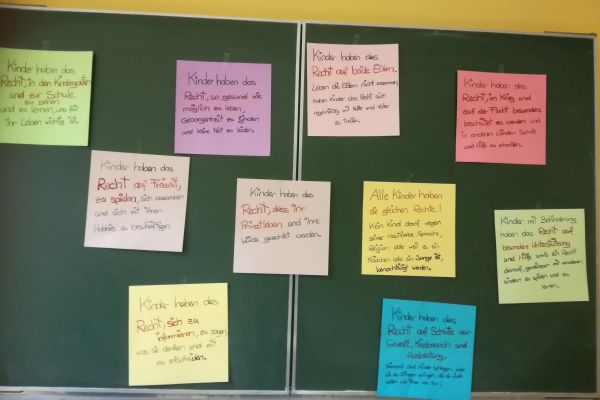 Kinder haben das
Recht, in den Kindergarten
und zur Schule
zu gehen
und zu lernen, was für
ihr Leben wichtig ist.
Kinder haben das
Recht, so gesund wie
möglich zu leben,
Geborgenheit zu finden
und keine Not zu leiden.
Kinder haben das
Recht auf beide Eltern.
Leben die Eltern nicht zusammen,
haben Kinder das Recht sich
regelmäßig mit Mutter und Vater
zu treffen.
Kinder haben das
Recht, im Krieg und
auf der Flucht besonders
beschützt zu werden und
in anderen Ländern Schutz
und Hilfe zu erhalten.
Kinder haben das
Recht auf Freizeit,
zu spielen, sich auszuruhen
und sich mit ihren
Hobbies zu beschäftigen.
Kinder haben das
Recht, dass ihr
Privatleben und ihre
Würde geachtet werden.
Alle Kinder haben
die gleichen Rechte!
Kein Kind darf wegen
seiner Hautfarbe, Sprache,
Religion oder weil es ein
Mädchen oder ein Junge ist,
benachteiligt werden.
Kinder mit Behinderung
haben das Recht auf
besondere Unterstützung
und Hilfe, sowie ein Recht
darauf, gemeinsam mit anderen
Kindern zu spielen und zu
lernen.
Kinder haben das
Recht, sich zu
informieren, zu sagen,
was sie denken und mit
zu entscheiden.
Kinder haben das
Recht auf Schutz vor
Gewalt, Missbrauch und
Ausbeutung.
Niemand darf Kinder schlagen oder